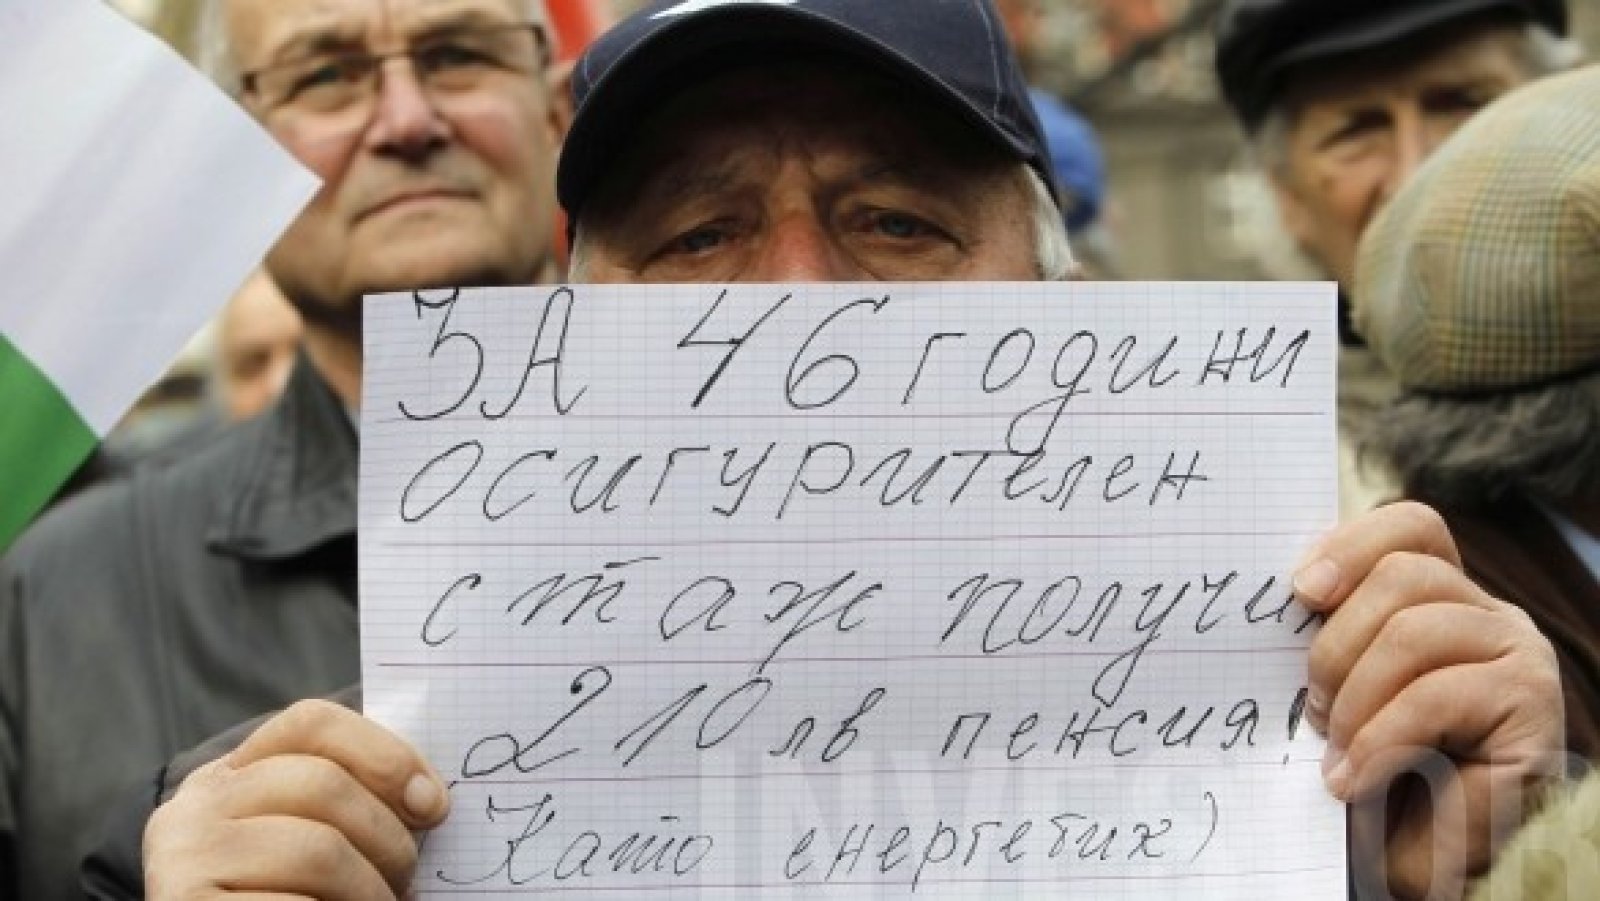 ЗА 46 години
осигурителен
стаж получих
210 лв пенсия!
Като енергетик)
INVESTOR